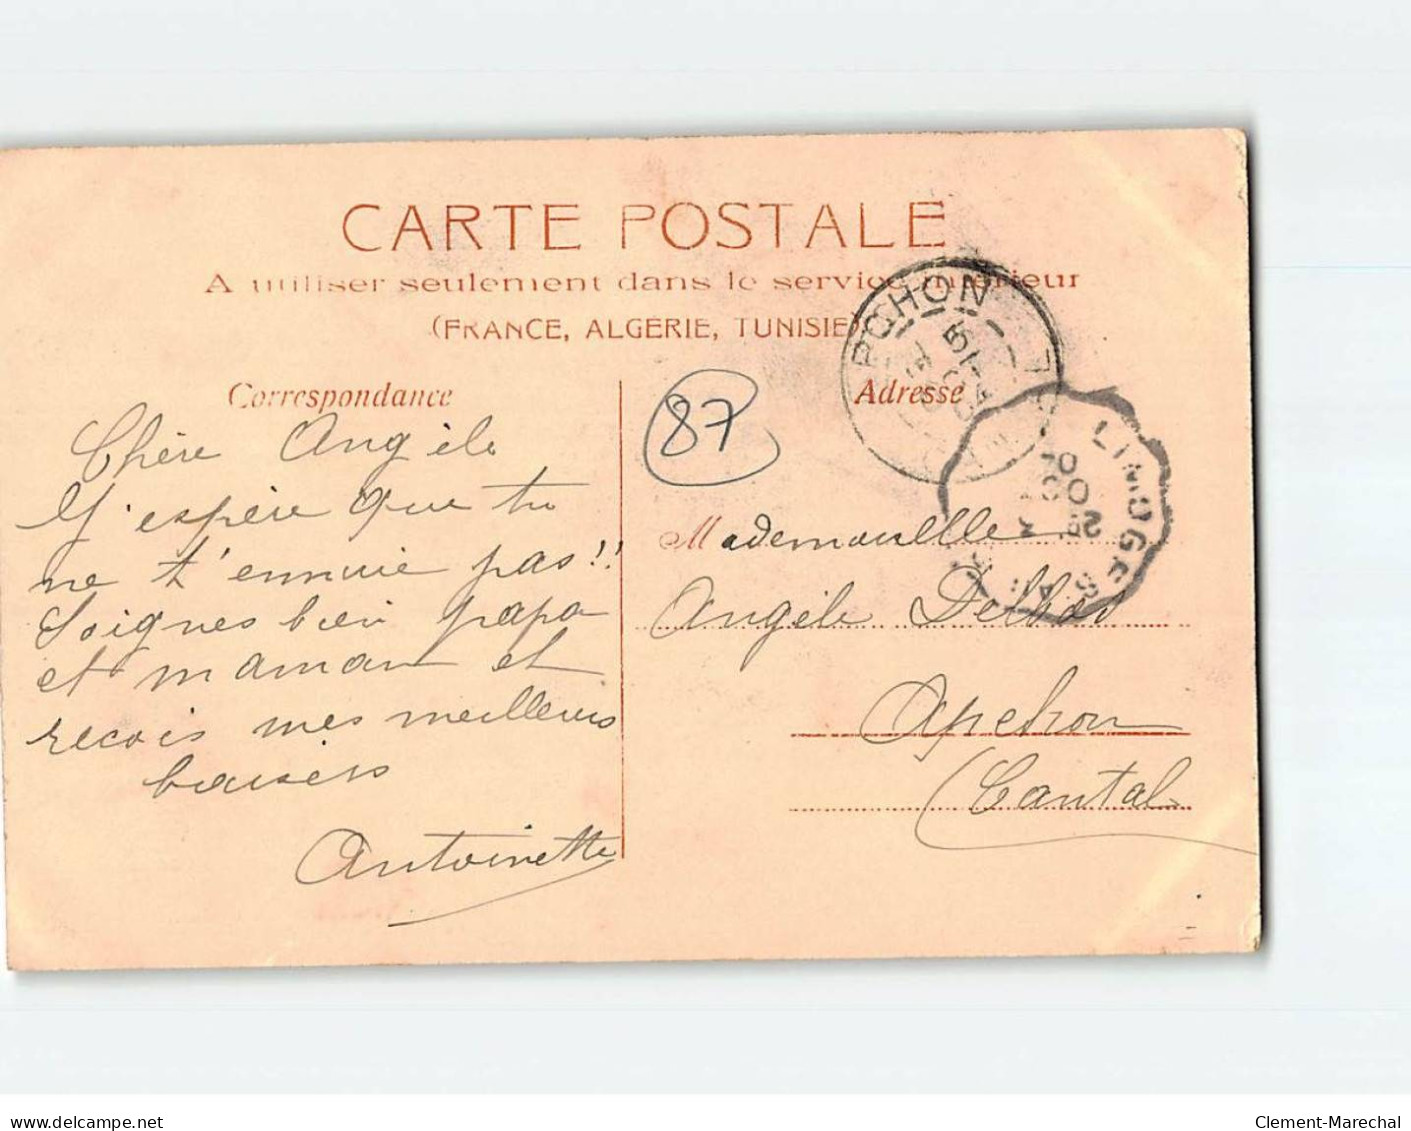 CARTE POSTALE
A utiliser seulement dans le service intérieur
(FRANCE, ALGÉRIE, TUNISIE)
Correspondance
Chère Angèle
J'espère que tu
ne t'ennuie pas!!
Soignes bien papa
et maman et
recois mes meilleurs
baisers
Antoinette
87
Adresse
APCHON
LIMOGES
Mademoiselle
Angèle
Apchon
(Cantal
delcampe.net
Clement-Marechal